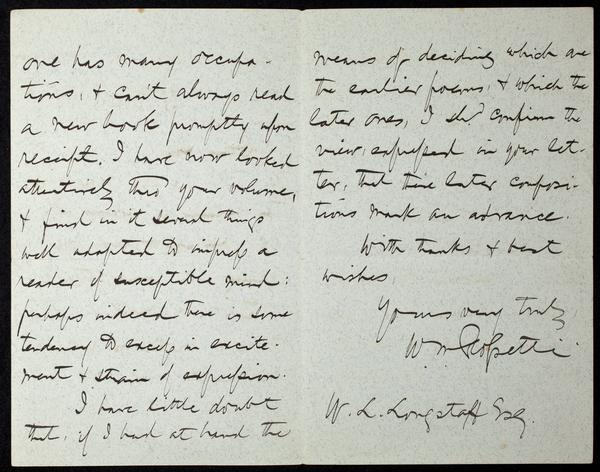 one has many occupa-
tions, & can't always read
a new book promptly upon
receipt. I have now looked
attentively thro' your volume,
& find in it several things
well adapted to impress a
reader of susceptible mind:
perhaps indeed there is some
tendency to excess in excite-
ment & strain of expression.
I have little doubt
that, if I had at hand the
means of deciding which are
the earlier poems, & which the
later ones, I shd. confirm the
view, expressed in your let-
ter, that these later composi-
tions mark an advance.
With thanks & best
wishes,
Yours very truly,
W. M. Rossetti
W. L. Longstaff Esq.